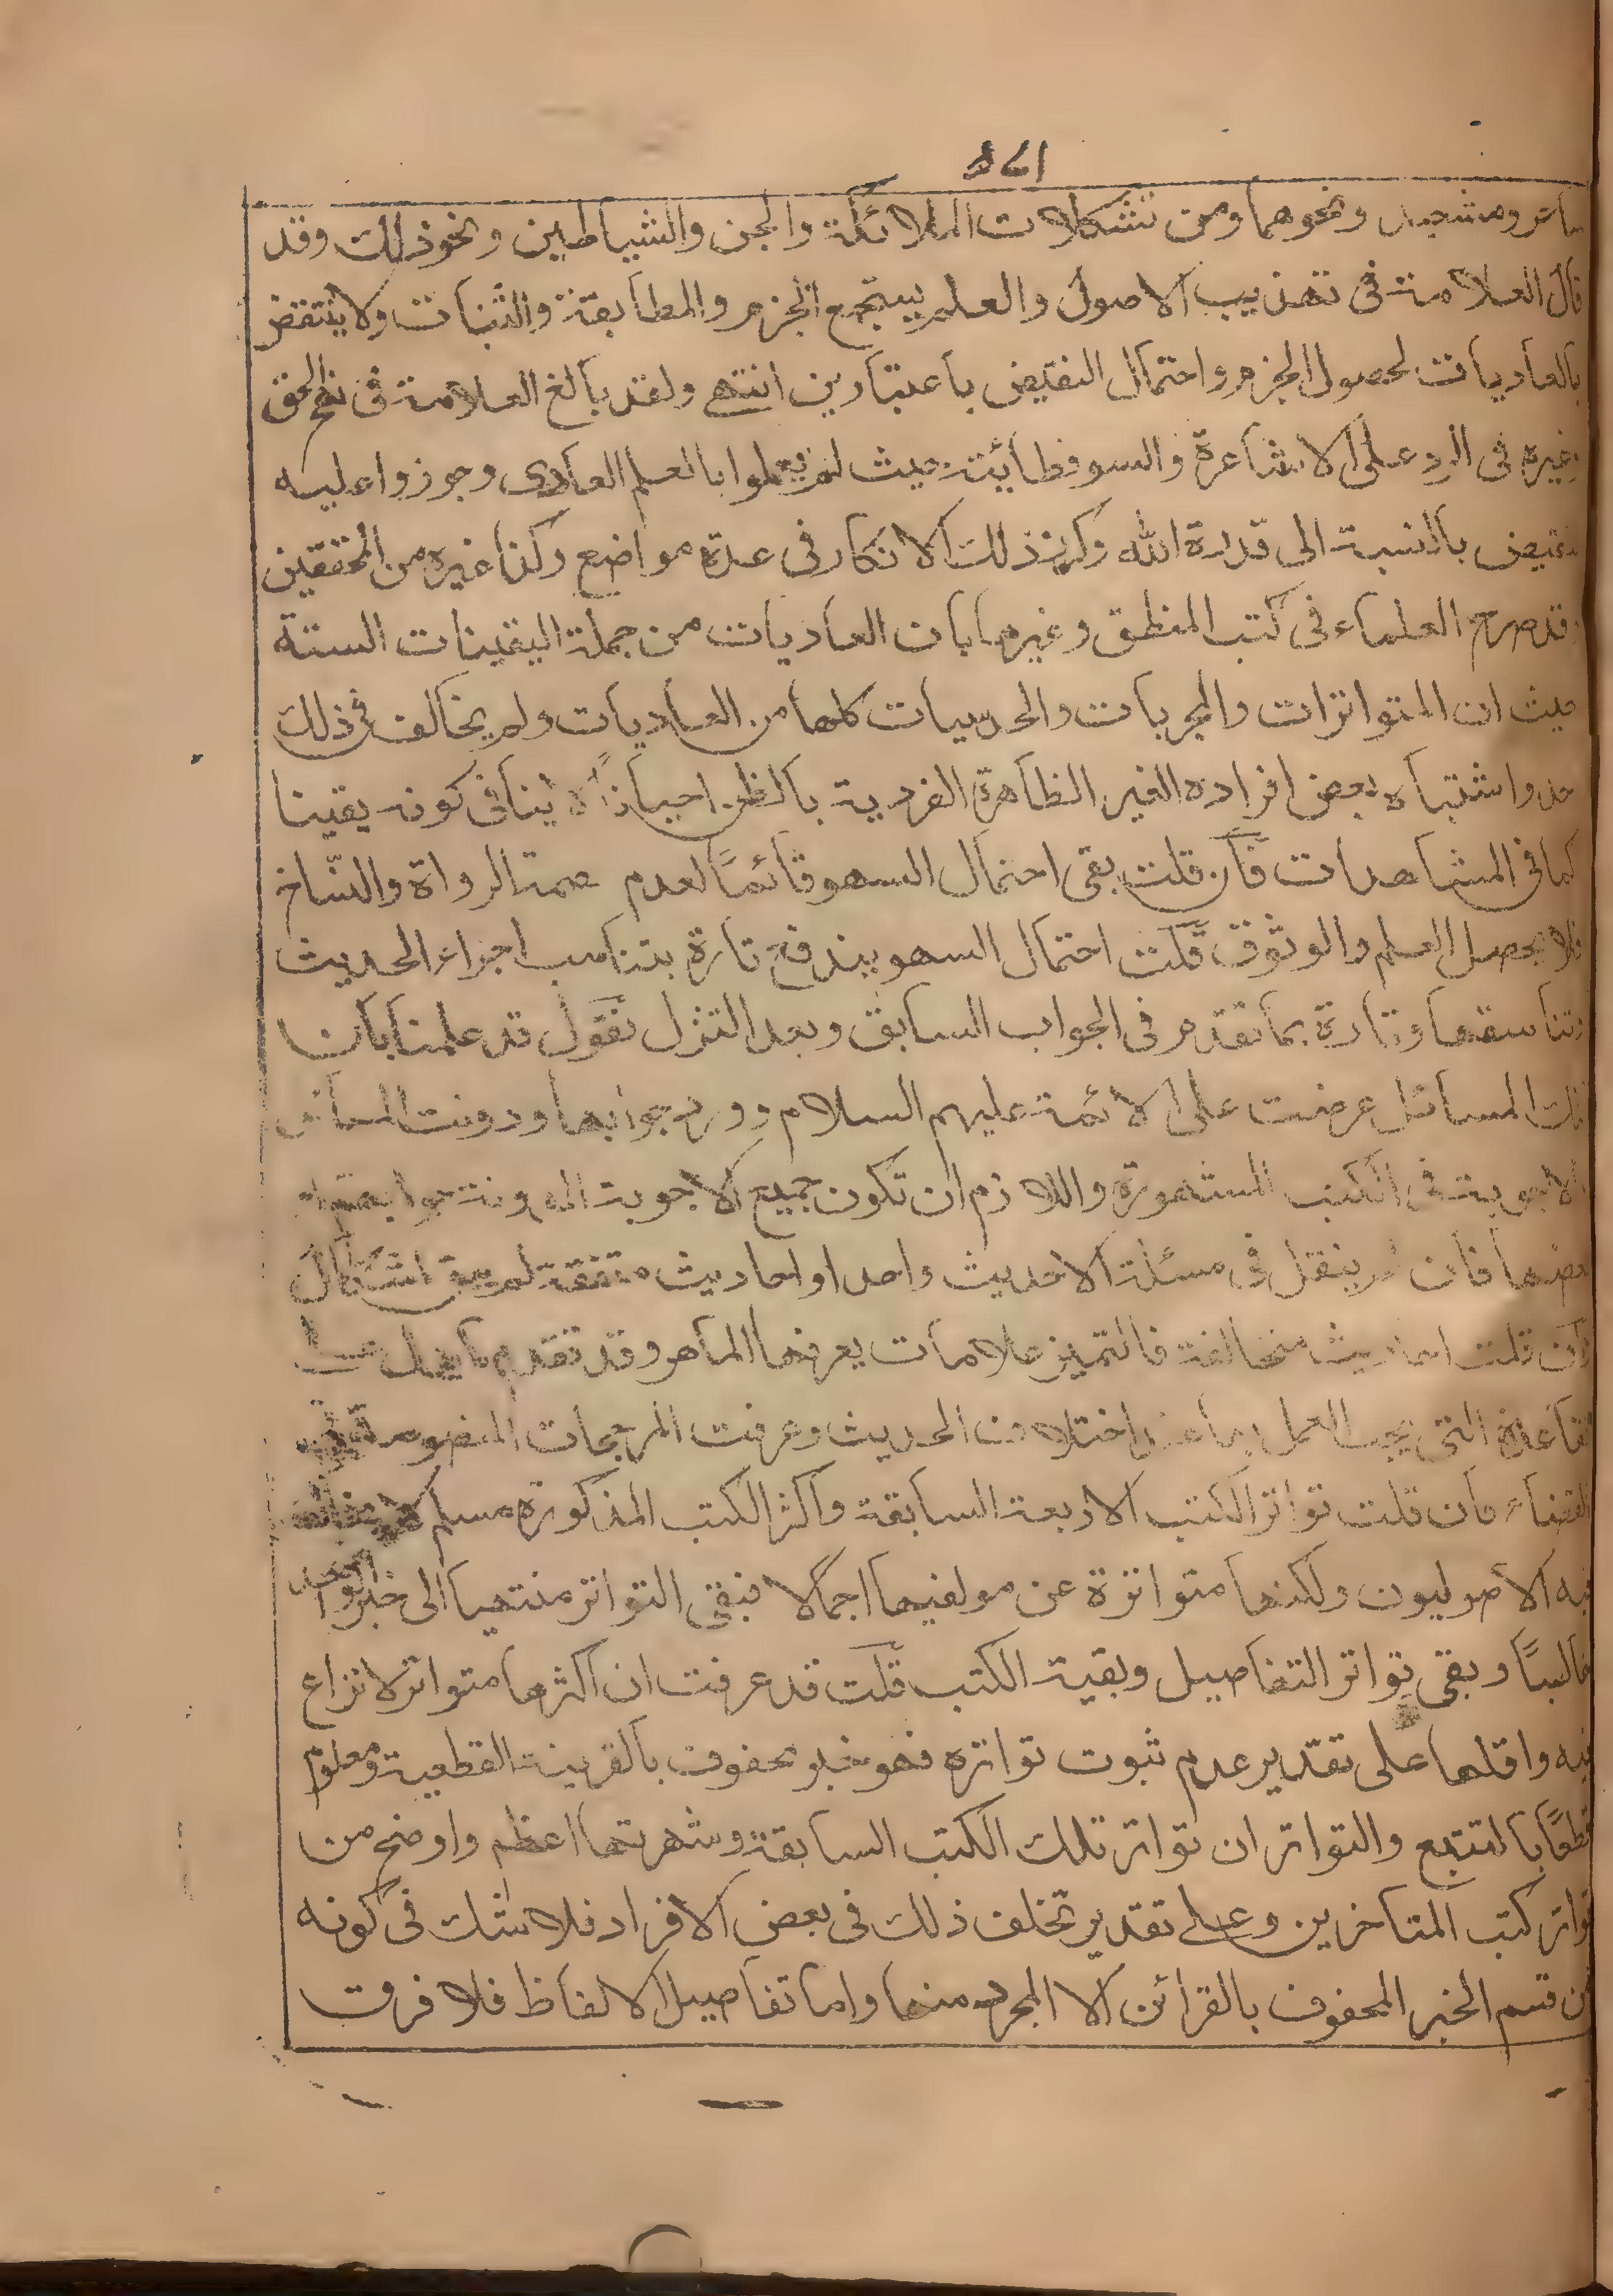 ساحر ومشعبد ونحوهما ومن تشكلات الملائكة والجن والشياطين ونحو ذلك وقد
قال العلامة فى تهذيب الاصول والعلم يستجمع الجزم والمطابقة والثبات ولا ينتقض
بالعاديات لحصول الجزم واحتمال النقيض باعتبارين انتهى ولقد بالغ العلامة فى نهج الحق
وغيره فى الرد على الاشاعرة والسوفطائية حيث لم يعملوا بالعلم العادى وجوزوا عليه
النقيض بالنسبة الى قدرة الله وكرر ذلك الانكار فى عدة مواضع وكذا غيره من المحققين
وقد صرح العلماء فى كتب المنطق وغيرها بان العاديات من جملة اليقينات الستة
حيث ان المتواترات والمجربات والحدسيات كلها من العاديات ولم يخالف فى ذلك
احد واشتباه بعض افراده الغير الظاهرة الفردية بالظن احيانًا لا ينافى كونه يقينا
كما فى المشاهدات فان قلت بقى احتمال السهو قائمًا لعدم عصمة الرواة والنسّاخ
فلا يحصل العلم والوثوق قلت احتمال السهو يندفع تارة بتناسب اجزاء الحديث
وتناسقها وتارة بما تقدم فى الجواب السابق وبعد التنزل نقول قد علمنا بان
تلك المسائل عرضت على الائمة عليهم السلام وورد جوابها ودونت المسائل
والاجوبة فى الكتب المشهورة واللازم ان تكون جميع الاجوبة المدونة جوابهم او
بعضها فان لم ينقل فى مسئلة الا حديث واحد او احاديث متفقة لم يبق اشكال
وان قلت احاديث متخالفة فالتميز علامات يعرفها الماهر وقد تقدم ما يدل على
القاعدة التى يجب العمل بها عند اختلاف الحديث وعرفت المرجحات المنصوصة فى
القضاء فان قلت تواتر الكتب الاربعة السابقة واكثر الكتب المذكورة مسلم لا يخالف
فيه الأصوليون ولكنها متواترة عن مولفيها اجمالا فبقى التواتر منتهيا الى خبر الواحد
غالبًا وبقى تواتر التفاصيل وبقية الكتب قلت قد عرفت ان اكثرها متواتر لا نزاع
فيه واقلها على تقدير عدم ثبوت تواتره فهو خبر محفوف بالقرينة القطعية ومعلوم
قطعًا بالتتبع والتواتر ان تواتر تلك الكتب السابقة وشهرتها اعظم واوضح من
تواتر كتب المتاخرين وعلى تقدير تخلف ذلك فى بعض الافراد فلا شك فى كونه
من قسم الخبر المحفوف بالقرائن الا المجرد منها واما تفاصيل الالفاظ فلا فرق